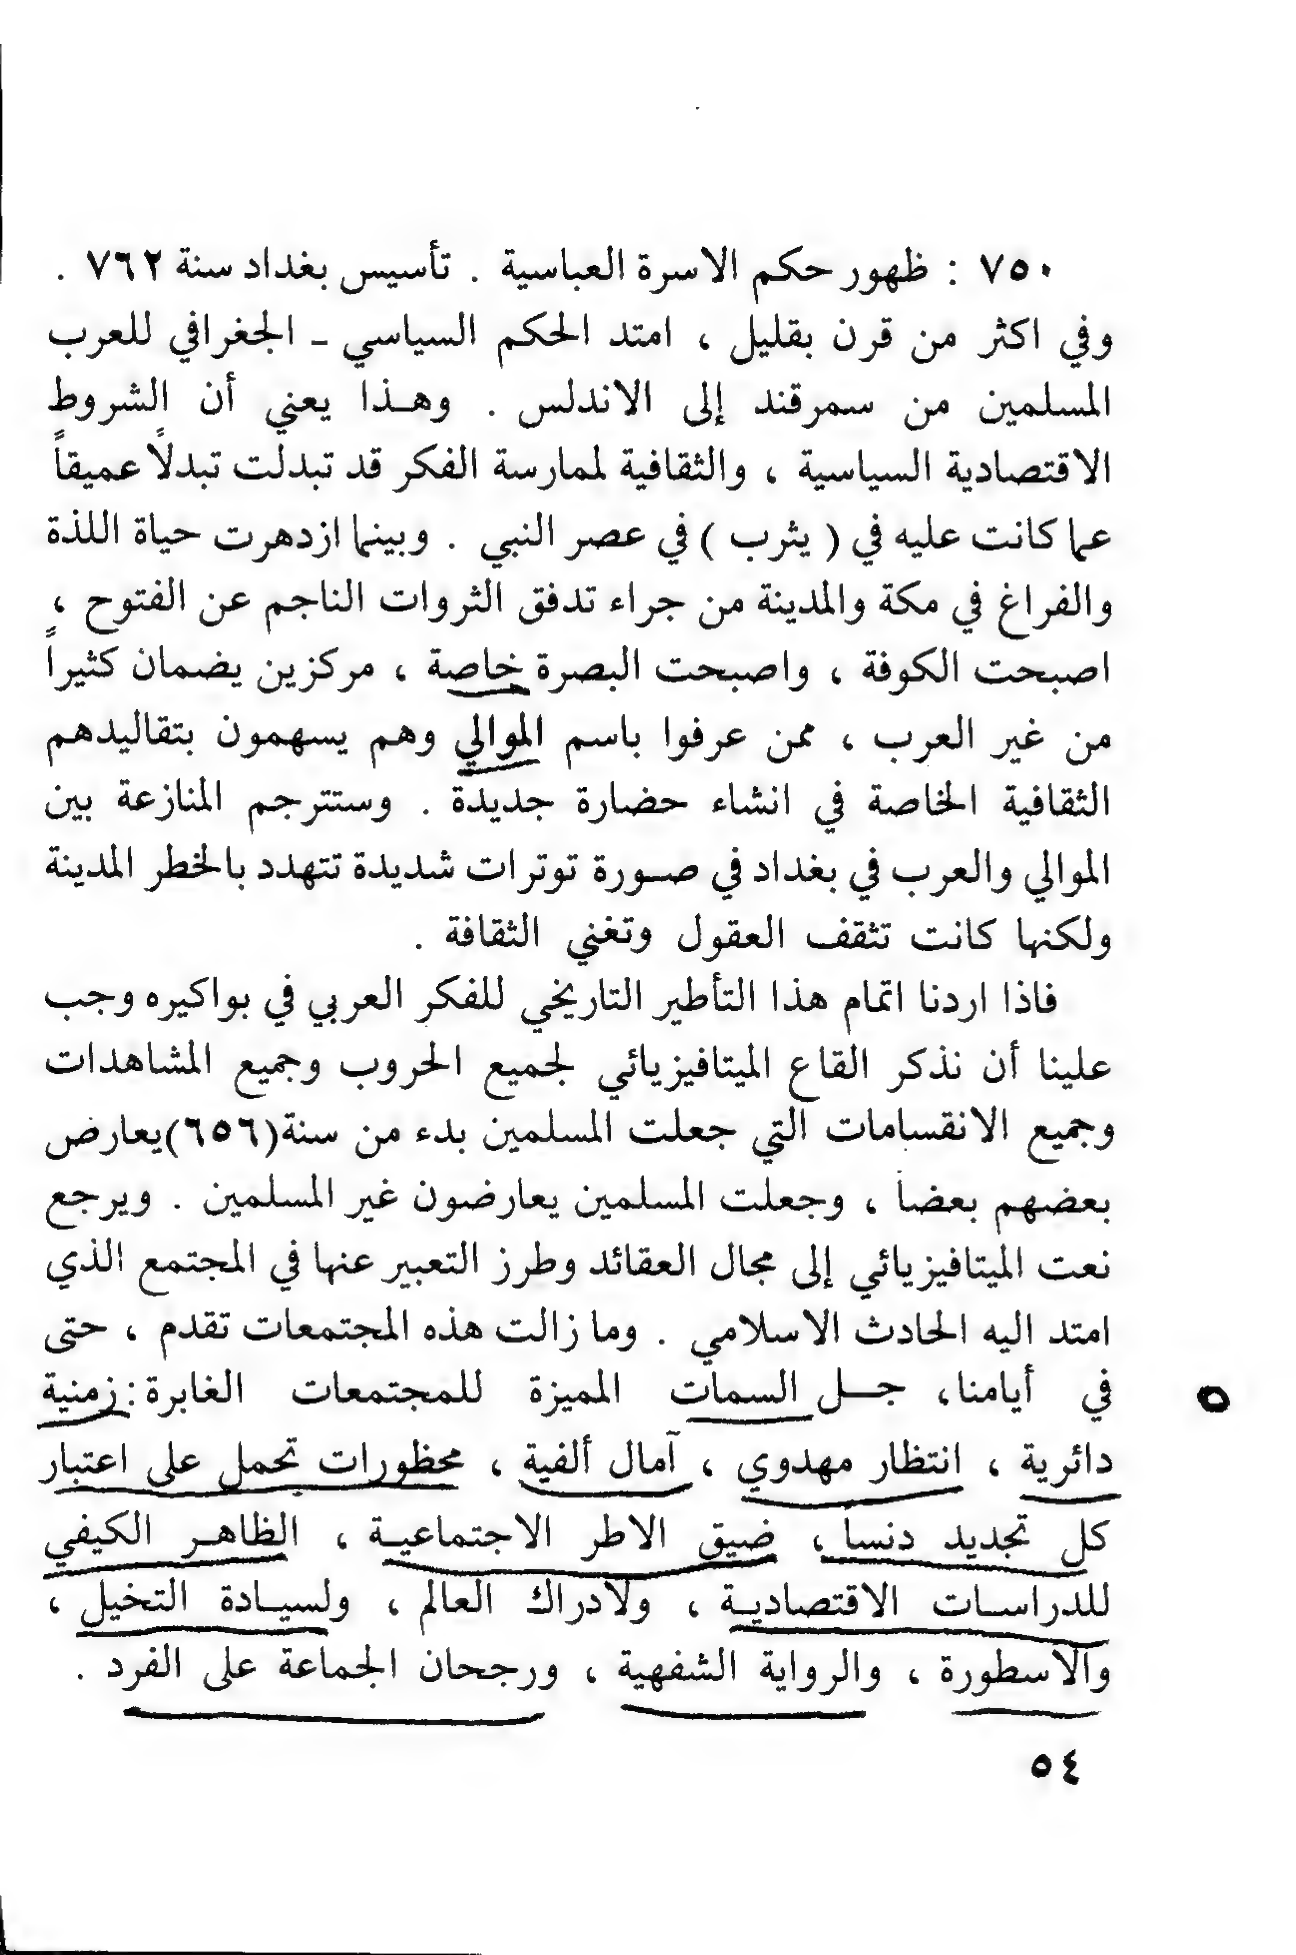 ٧٥٠ : ظهور حكم الاسرة العباسية . تأسيس بغداد سنة ٧٦٢ .
وفي اكثر من قرن بقليل ، امتد الحكم السياسي ـ الجغرافي للعرب
المسلمين من سمرقند إلى الاندلس . وهـذا يعني أن الشروط
الاقتصادية السياسية ، والثقافية لممارسة الفكر قد تبدلت تبدلاً عميقاً
عما كانت عليه في ( يثرب ) في عصر النبي . وبينما ازدهرت حياة اللذة
والفراغ في مكة والمدينة من جراء تدفق الثروات الناجم عن الفتوح ،
اصبحت الكوفة ، واصبحت البصرة خاصة ، مركزين يضمان كثيراً
من غير العرب ، ممن عرفوا باسم الموالي وهم يسهمون بتقاليدهم
الثقافية الخاصة في انشاء حضارة جديدة . وستترجم المنازعة بين
الموالي والعرب في بغداد في صـورة توترات شديدة تتهدد بالخطر المدينة
ولكنها كانت تثقف العقول وتغني الثقافة .
فاذا اردنا اتمام هذا التأطير التاريخي للفكر العربي في بواكيره وجب
علينا أن نذكر القاع الميتافيزيائي لجميع الحروب وجميع المشاهدات
وجميع الانقسامات التي جعلت المسلمين بدء من سنة(٦٥٦)يعارض
بعضهم بعضاً ، وجعلت المسلمين يعارضون غير المسلمين . ويرجع
نعت الميتافيزيائي إلى مجال العقائد وطرز التعبير عنها في المجتمع الذي
امتد اليه الحادث الاسلامي . وما زالت هذه المجتمعات تقدم ، حتى
في أيامنا، جـل السمات المميزة للمجتمعات الغابرة: زمنية
دائرية ، انتظار مهدوي ، آمال ألفية ، محظورات تحمل على اعتبار
كل تجديد دنساً ، ضيق الاطر الاجتماعيـة ، الظاهـر الكيفي
للدراسـات الاقتصاديـة ، ولادراك العالم ، ولسيـادة التخيل ،
والاسطورة ، والرواية الشفهية ، ورجحان الجماعة على الفرد .
٥٤